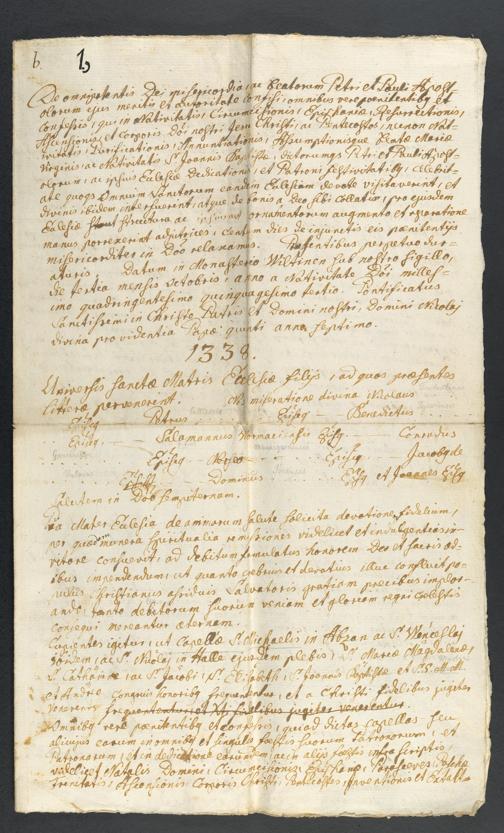 b. 1,
De omnipotentis Dei misericordia, ac Beatorum Petri et Pauli Apost-
olorum ejus meritis et autoritate confisi, omnibus vere poenitentibq et
Confessis, qui in Nativitatis, Circumcisionis, Epiphaniae, Resurrectionis,
Ascensionis, et Corporis Dni nostri Jesu Christi, ac Pentecostes, necnon Nat-
ivitatis, Purificationis, Annuntiationis, Assumptionisque Beatae Mariae
Virginis, ac Nativitatis St Joannis Baptistae, Petri et Pauli Apost-
olorum, ac ipsius Eclesiae Dedicationis, et Patroni festivitatibq, Celebrit-
ate quoq Omnium Sanctorum eandem Eclesiam devote visitaverint, et
divinis ibidem interfuerint, atque de bonis a Deo sibi collatis, pro ejusdem
Eclesiae structura ac ornamentorum augmento et reparatione
manus porrexerint adjutrices, Centum dies de injunctis eis poenitentijs
misericorditer in Dno relaxamus. Praesentibus perpetuo dur-
aturis. Datum in Monasterio Wiltinen sub nostro sigillo,
die tertia mensis octobris, anno a Nativitate Dni milles-
imo quadringentesimo quinquagesimo tertio. Pontificatus
Sanctissimi in Christo Patris et Domini nostri, Domini Nicolaj
divina providentia Papae quinti anno septimo.
1338.
Universis sanctae Matris Ecclesiae filijs, ad quos praesentes
litterae pervenerint. Nos miseratione divina Nicolaus
Episq Petrus Episq Benedictus
Episq Salamannus Wormaciensis Episq Conradus
Episq Episq Jacobq de
Dominus Episq et Joannes Episq
Salutem in Dno sempiternam.
Pia Mater Eclesia de animarum salute solicita devotionem fidelium,
per quaedam munera spiritualia remissiones videlicet et indulgentias in-
vitare consuevit, ad debitum famulatus honorem Deo et sacris aed-
ibus impendendum, ut quanto crebrius et devotius illuc confluit po-
pulus Christianus assiduis Salvatoris gratiam precibus implor-
ando, tanto delictorum suorum veniam et gloriam regni celestis
consequi mereantur aeternam.
Cupientes igitur, ut Capellae St Michaelis in Absan ac St Wenceslaj
ibidem, ac St Nicolaj in Halle ejusdem plebis, St Mariae Magdalenae,
St Catharinae, ac St Jacobi, St Elisabeth, St Joannis Baptistae et
et Andreae congruis honoribq frequententur, et a Christi fidelibus jugiter
venerentur
Omnibq vere poenitentibq et confessis, qui ad dictas capellas seu
alicujus earum in omnibq et singulis festis suorum Patronorum, et
Patronarum, et in dedicatione earundem ac in alijs festis infra scriptis,
videlicet Natalis Domini, Circumcisionis, Epiphaniae, Parasceves, Paschae
Trinitatis, Ascensionis, Corporis Christi, Pentecostes, Inventionis et Exalta